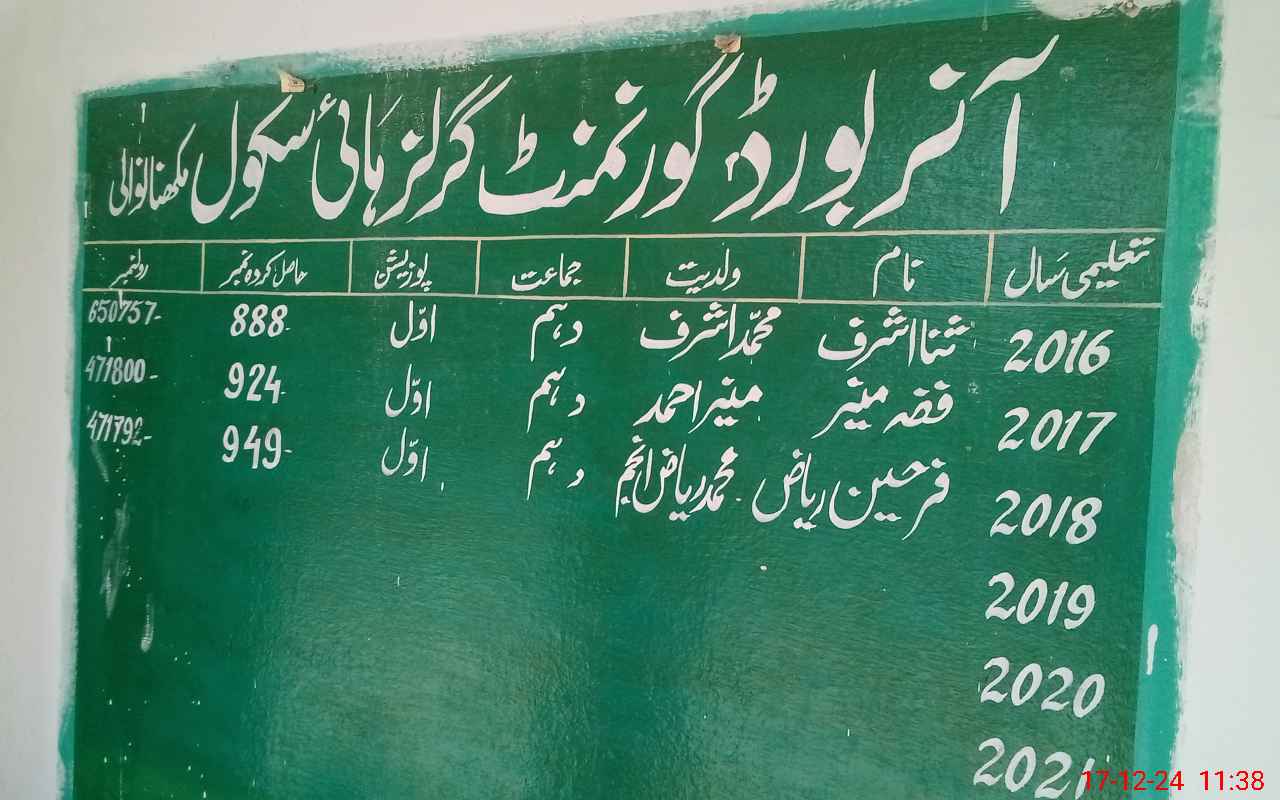 آنر بورڈ گورنمنٹ گرلز ہائی سکول مکھنانوالی
تعلیمی سال نام ولدیت جماعت پوزیشن حاصل کردہ نمبر رولنمبر
2016 ثنا اشرف محمّد اشرف دہم اوّل 888 650757
2017 فقہ منیر منیر احمد دہم اوّل 924 471800
2018 فرحین ریاض محمد ریاض انجم دہم اوّل 949 471792
2019
2020
2021
17-12-24 11:38